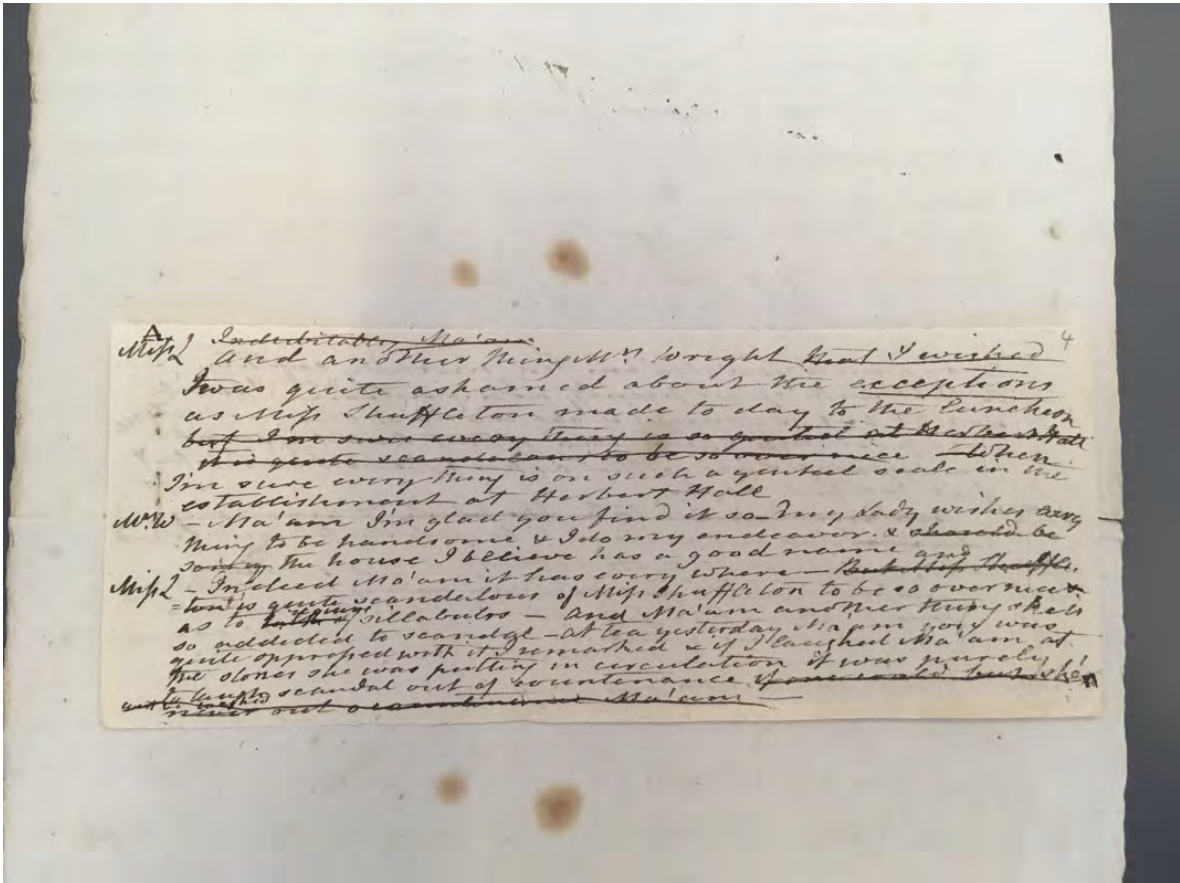 A
4
Miss L Indubitably Ma'am
And another thing Mrs. Wright that I wished
I was quite ashamed about the exceptions
as Miss Shuffleton made to day to the Luncheon
but I'm sure every thing is so genteel at Herbert Hall
it is quite scandalous to be so over nice — When
I'm sure every thing is on such a genteel scale in the
establishment at Herbert Hall
Mrs. W — Ma'am I'm glad you find it so — my Lady wishes every
thing to be handsome & I do my endeavor. & should be
sorry the house I believe has a good name and
Miss L — Indeed Ma'am it has every where — But Miss Shuffle
=ton is quite scandalous of Miss Shuffleton to be so over nice
as to sillabubs — And Ma'am another thing she is
so addicted to scandal — at tea yesterday Ma'am you was
quite oppressed with it I remarked & if I laughed Ma'am at
the stories she was putting in circulation it was purely
to laugh scandal out of countenance if one could but she's
never out o countenance Ma'am —